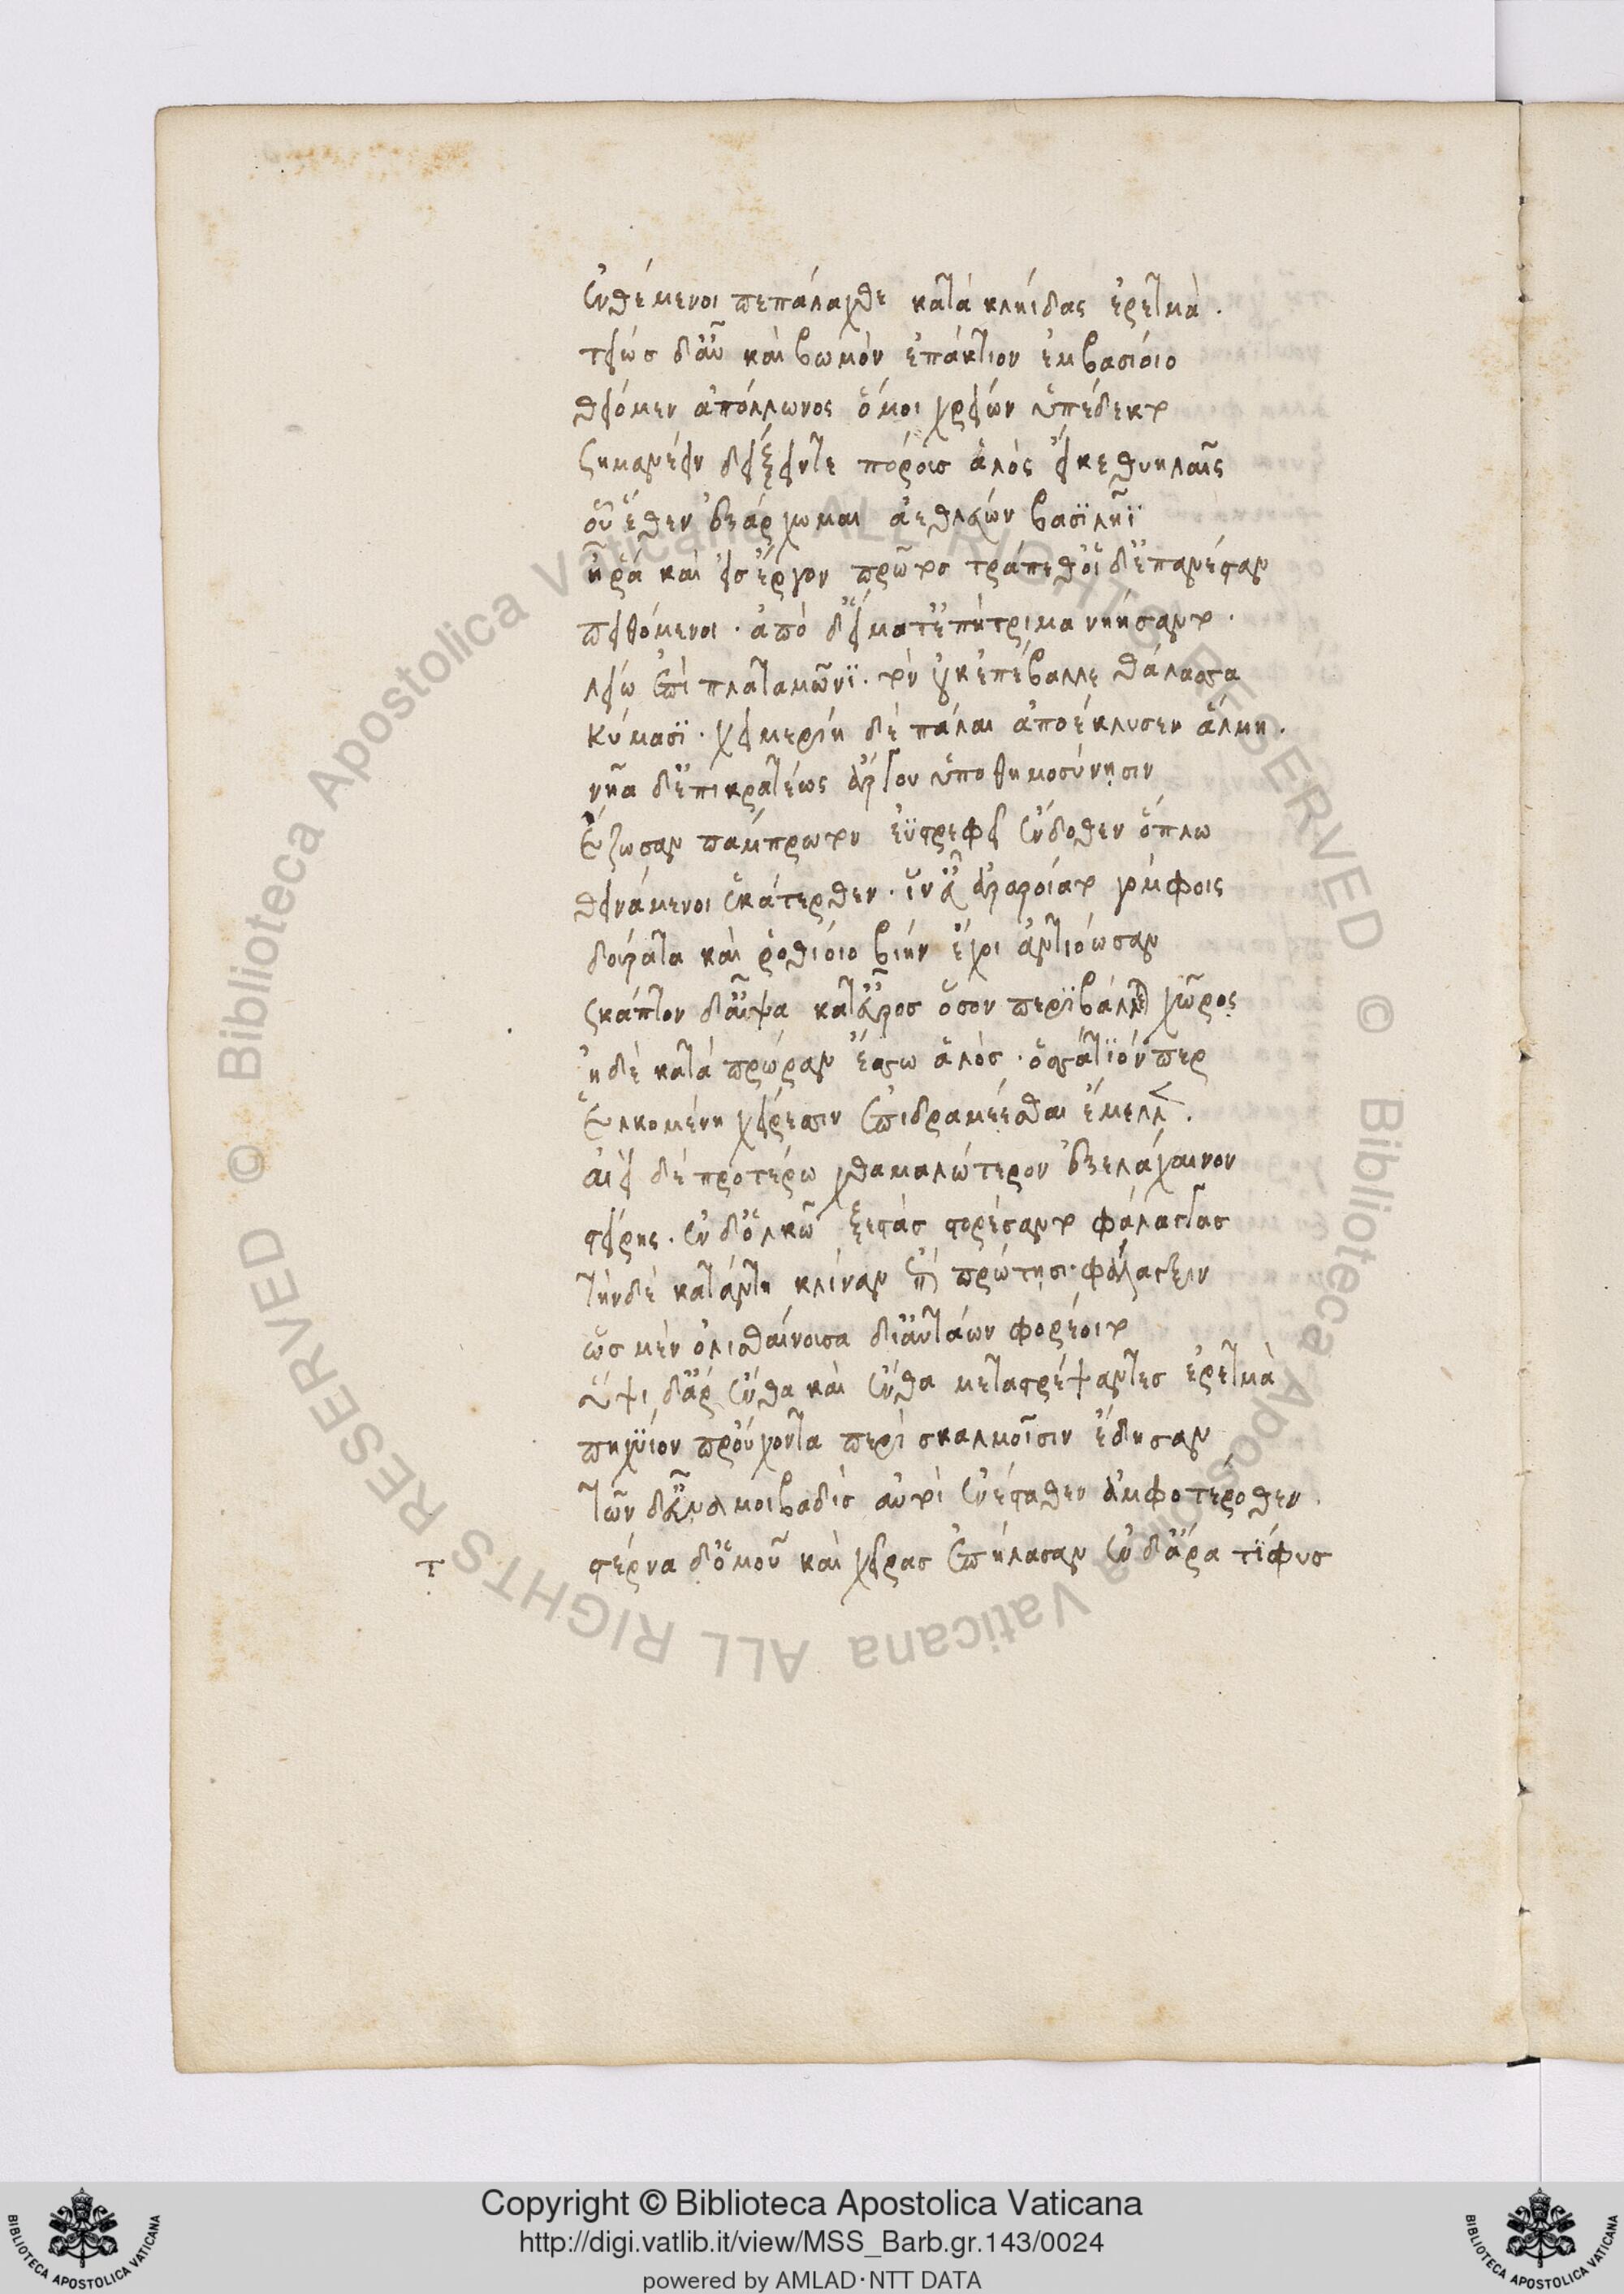 ἐνθέμενοι πεπάλαχθε κατὰ κληῗδας ἐρετμὰ.
τείως δ᾽ αὖ καὶ βωμὸν ἐπάκτιον ἐμβασίοιο
θείομεν ἀπόλλωνος ὅ μοι χρείων ὑπέδεκτο
σημανέειν δείξειν τε πόρους ἁλὸς εἴ κε θυηλαῖς
οὗ ἕθεν ἐξάρχωμαι ἀεθλεύων βασιλῆϊ
ἦ ῥα καὶ εἰς ἔργον πρῶτος τράπεθ᾽ οἱ δ᾽ ἐπανέσταν
πειθόμενοι. ἀπὸ δ᾽ εἵματ᾽ ἐπήτριμα νηήσαντο.
λείῳ ἐπὶ πλαταμῶνι. τὸν οὐκ ἐπέβαλλε θάλασσα
κύμασι. χειμερίη δὲ πάλαι ἀποέκλυσεν ἅλμη.
νῆα δ᾽ ἐπικρατέως ἄργου ὑποθημοσύνῃσιν
ἔζωσαν πάμπρωτον ἐϋστρεφεῖ ἔνδοθεν ὅπλῳ
τεινάμενοι ἑκάτερθεν. ἵν᾽ εὖ ἀραροίατο γόμφοις
δούρατα καὶ ῥοθίοιο βίην ἔχοι ἀντιόωσαν
σκάπτον δ᾽ αἶψα κατ᾽ εὖρος ὅσον περιβάλλετο χῶρος
ἠδὲ κατὰ πρώραν ἔσσω ἁλὸς. ὁσσάτιόν περ
ἑλκομένη χείρεσσιν ἐπιδραμέεσθαι ἔμελλεν.
αἰεὶ δὲ προτέρω χθαμαλώτερον ἐξελάχαινον
στείρης. ἐν δ᾽ ὁλκῷ ξεστὰς στορέσαντο φάλαγγας
τὴν δὲ κατάντη κλίναν ἐπὶ πρώτῃσι φάλαγξιν
ὥς μὲν ὀλισθαίνουσα δι᾽ αὐτάων φορέοιτο
ὕψι δ᾽ ἄρ ἔνθα καὶ ἔνθα μεταστρέψαντες ἐρετμὰ
πηχύϊον προύχοντα περὶ σκαλμοῖσιν ἔδησαν
τῶν δ᾽ ἐναμοιβαδὶς αὐτοὶ ἐνέσταθεν ἀμφοτέρωθεν.
στέρνα δ᾽ ὁμοῦ καὶ χεῖρας ἐπήλασαν ἐν δ᾽ ἄρα τίφυς
τ
Copyright © Biblioteca Apostolica Vaticana
http://digi.vatlib.it/view/MSS_Barb.gr.143/0024
powered by AMLAD·NTT DATA
BIBLIOTECA APOSTOLICA VATICANA
BIBLIOTECA APOSTOLICA VATICANA
© Biblioteca Apostolica Vaticana ALL RIGHTS RESERVED © Biblioteca Apostolica Vaticana ALL RIGHTS RESERVED